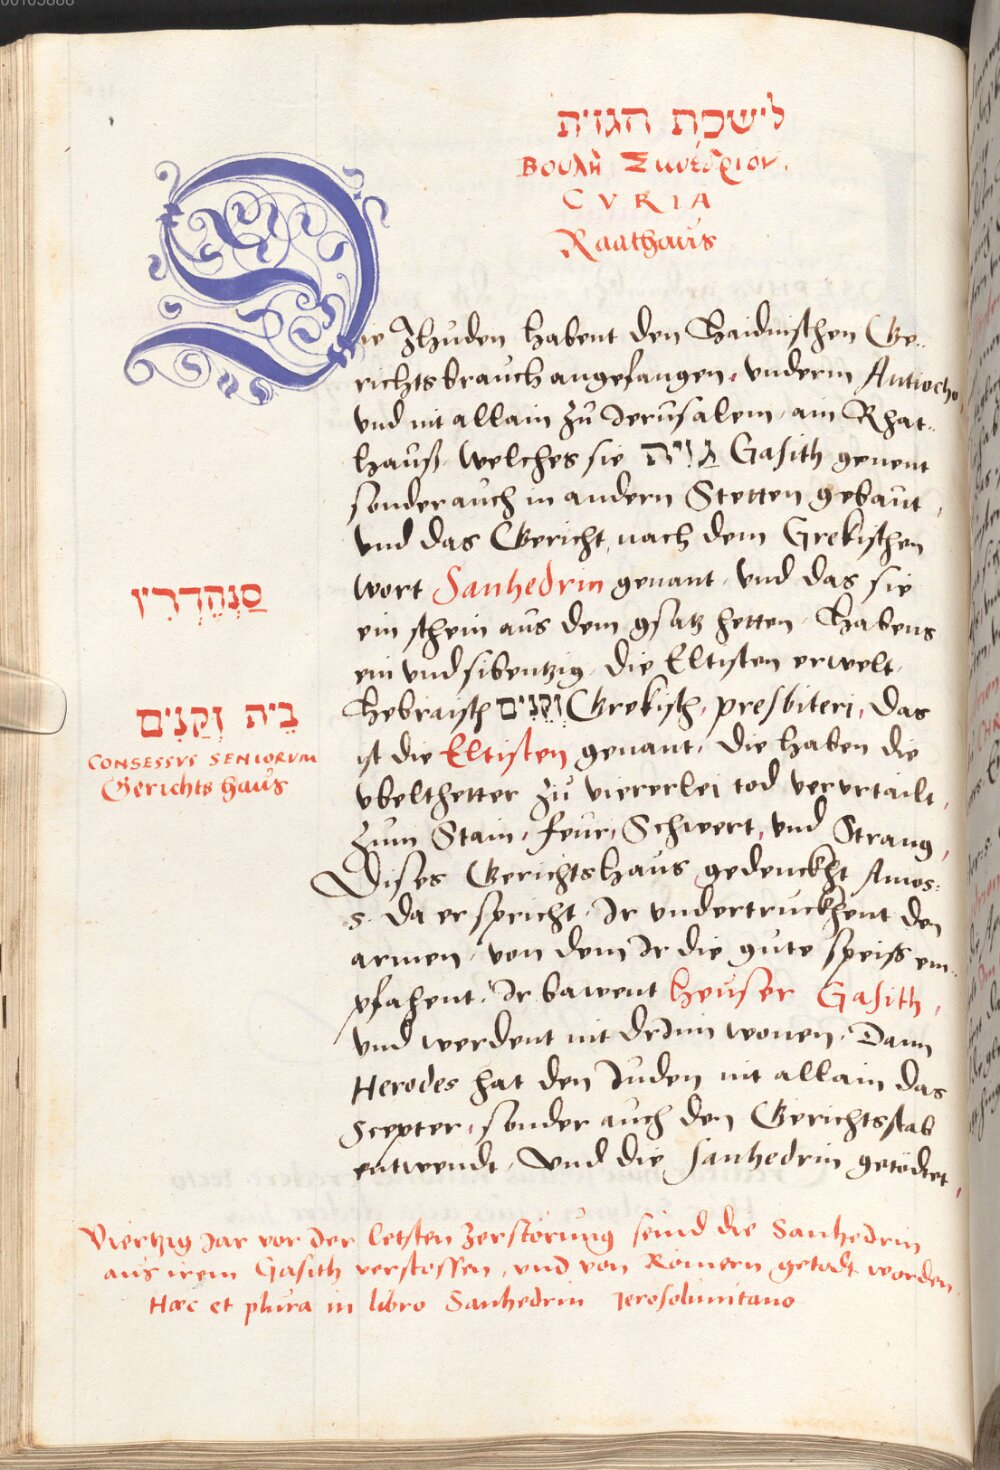 לישכת הגזית
Βουλὴ Συνέδριον.
CVRIA
Raathaus
Die Jhuden habent den Haidnischen Ge„
richtsbrauch angefangen, vnderm Antiocho,
Vnd nit allain zů Jerusalem, ain Rhat„
hauß, welches sie גזית Gasith genent
sonder auch in andern Stetten gebaut,
Vnd das Gericht, nach dem Grekischen
wort Sanhedrin genant, Vnd das sie
ein schein aus dem gsatz hetten, Habens
ein vnd sibentzig, die Eltisten erwelt,
Hebraisch זְקֵנִים Grekisch, presbiteri, das
ist die Eltisten genant, die haben die
vbelthetter zů viererlei tod verurtailt,
Zum Stain, feur, Schwert, vnd Strang,
Dises Gerichtshaus gedenckht Amos:
5. da er spricht, Ir vndertruckhent den
armen, von dem Ir die gute speiss em„
pfahent, Ir bawent heuser Gasith,
vnd werdent nit drinn wonen, Dann
Herodes hat den Juden nit allain das
Scepter, sonder auch den Gerichtsstab
entwendt, Vnd die Sanhedrin getödtet,
סַנְהֶדְרִין
בֵית זְקֵנִים
CONSESSVS SENIORVM
Gerichtshaus
Viertzig Jar vor der letsten zerstörung seind die Sanhedrin
aus irem Gasith verstossen, vnd von Römern getödt worden,
Hæc et plura in libro Sanhedrin Jerosolimitano